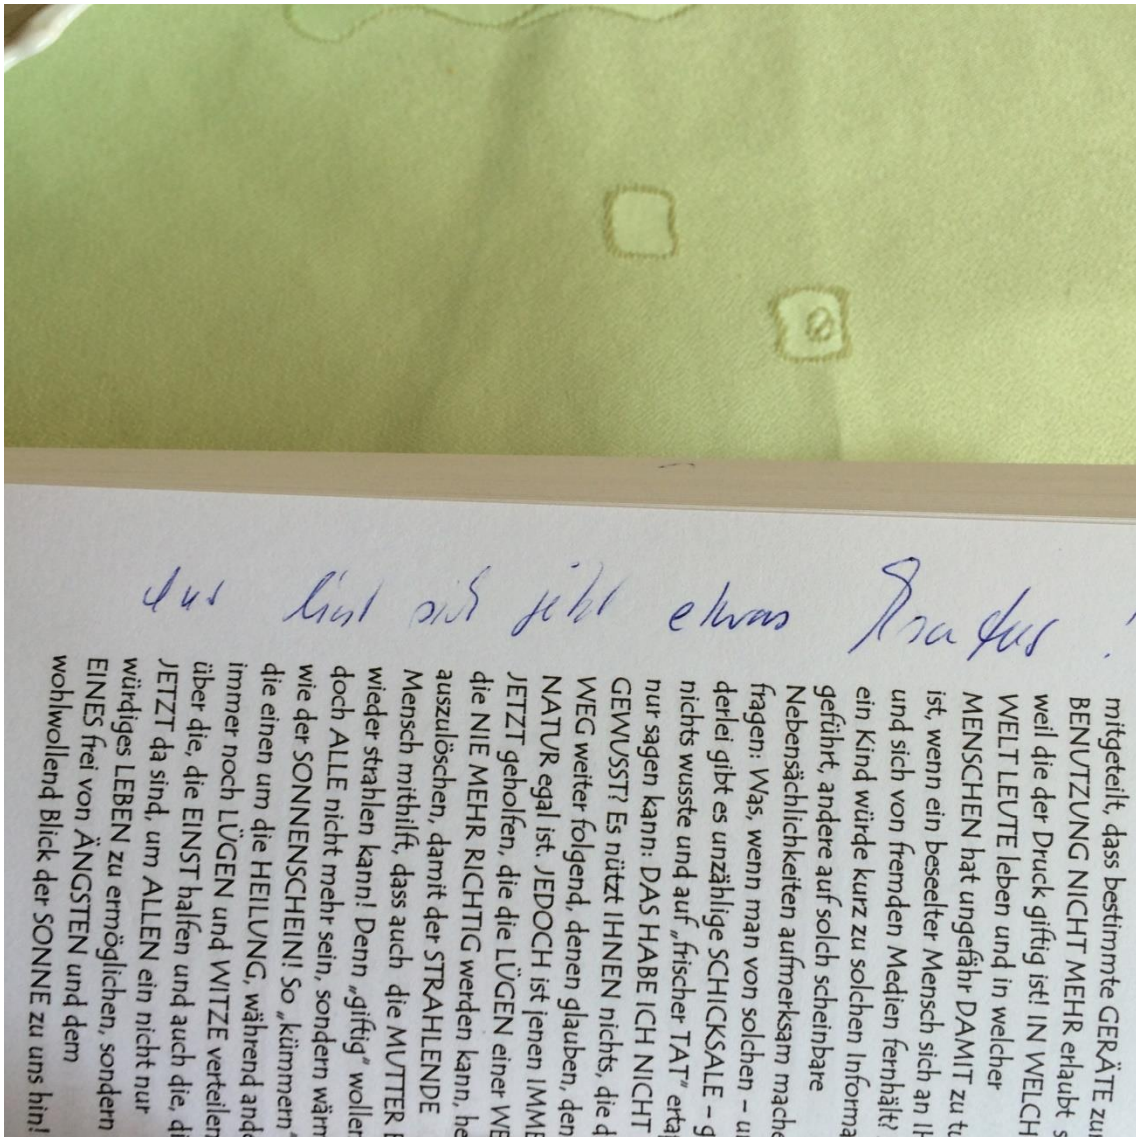 das liest sich jetzt etwas
mitgeteilt, dass bestimmte GERÄTE zu
BENUTZUNG NICHT MEHR erlaubt s
weil die der Druck giftig ist! IN WELCH
WELT LEUTE leben und in welcher
MENSCHEN hat ungefähr DAMIT zu t
ist, wenn ein beseelter Mensch sich an I
und sich von fremden Medien fernhält?
ein Kind würde kurz zu solchen Informa
geführt, andere auf solch scheinbare
Nebensächlichkeiten aufmerksam mache
fragen: Was, wenn man von solchen – u
derlei gibt es unzählige SCHICKSALE – g
nichts wusste und auf „frischer TAT" erta
nur sagen kann: DAS HABE ICH NICHT
GEWUSST? Es nützt IHNEN nichts, die d
WEG weiter folgend, denen glauben, den
NATUR egal ist. JEDOCH ist jenen IMME
JETZT geholfen, die die LÜGEN einer WE
die NIE MEHR RICHTIG werden kann, he
auszulöschen, damit der STRAHLENDE
Mensch mithilft, dass auch die MUTTER E
wieder strahlen kann! Denn „giftig" woller
doch ALLE nicht mehr sein, sondern wärm
wie der SONNENSCHEIN! So „kümmern"
die einen um die HEILUNG, während ande
immer noch LÜGEN und WITZE verteilen
über die, die EINST halfen und auch die, di
JETZT da sind, um ALLEN ein nicht nur
würdiges LEBEN zu ermöglichen, sondern
EINES frei von ÄNGSTEN und dem
wohlwollend Blick der SONNE zu uns hin!